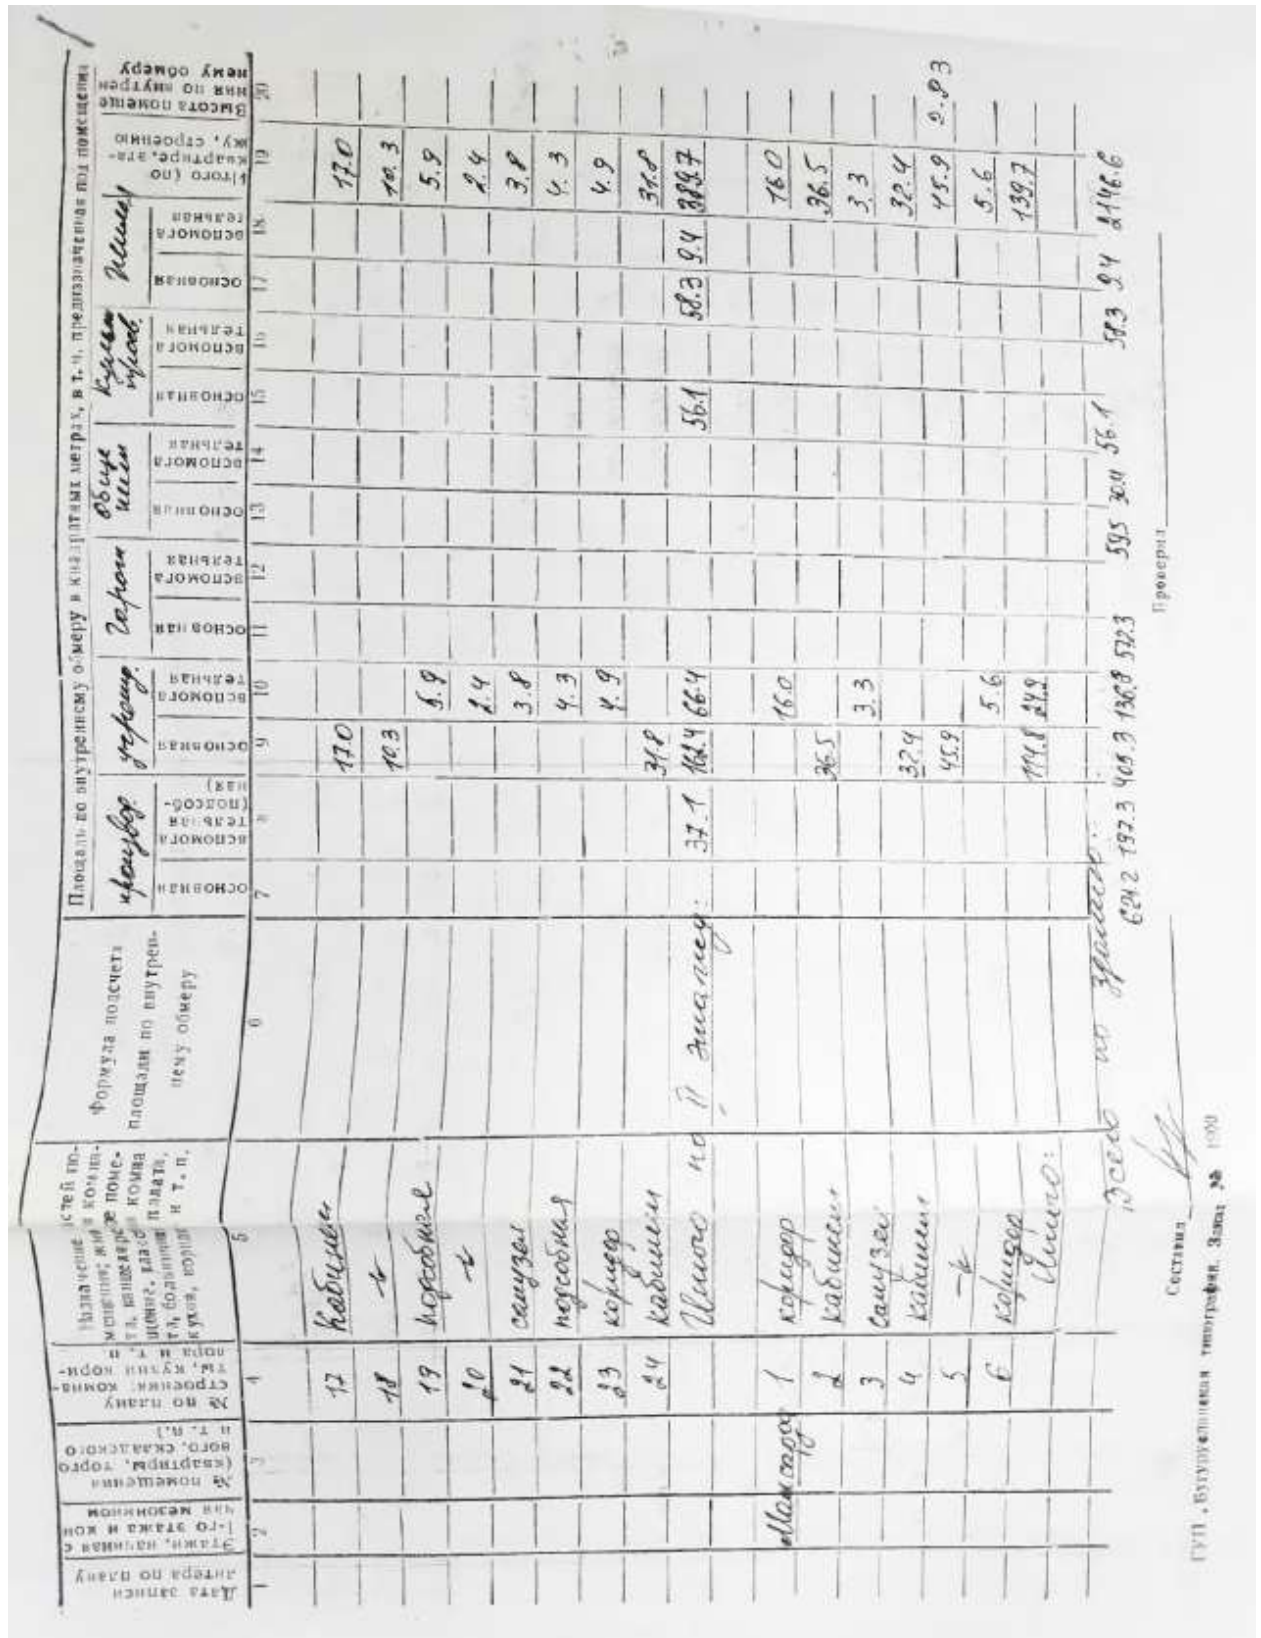 Площадь по внутреннему обмеру в квадратных метрах, в т. ч. предназначенная под помещения
Дата записи
литера по плану
Этажи, начиная с
1-го этажа и кон
чая мезонином
№ помещения
(квартиры, торго
вого, складского
и т. п.)
№ по плану
строения: комна-
ты, кухни кори-
дора и т. п.
Назначение частей по-
мещения: жилая комна-
та, канцелярское поме-
щение, классная комна
та, больничная палата,
кухня, коридор и т. п.
Формула подсчета
площади по внутрен-
нему обмеру
произвол.
учрежд.
Гараж
Общежит
Культ просв.
основная
вспомога
тельная
(подсоб-
ная)
основная
вспомога
тельная
основная
вспомога
тельная
основная
вспомога
тельная
основная
вспомога
тельная
основная
вспомога
тельная
Итого (по
квартире, эта-
жу, строению
Высота помеще
ния по внутрен
нему обмеру
1 2 3 4 5 6 7 8 9 10 11 12 13 14 15 16 17 18 19 20
17 Кабинет 17.0 17.0
18 -"- 10.3 10.3
19 подсобная 5.9 5.9
20 -"- 2.4 2.4
21 санузел 3.8 3.8
22 подсобная 4.3 4.3
23 коридор 4.9 4.9
24 кабинет 31.8 31.8
Итого по II этажу: 37.1 162.4 66.4 56.1 58.3 9.4 389.7
Мансарда 1 коридор 16.0 16.0
2 кабинет 36.5 36.5
3 санузел 3.3 3.3
4 кабинет 32.4 32.4
5 -"- 45.9 45.9 2.93
6 коридор 5.6 5.6
Итого: 114.8 24.9 139.7
Всего по зданию: 624.2 197.3 405.3 136.8 572.3 59.5 30.4 56.1 58.3 9.4 2146.6
Составил
Проверил
ГУП „Бугурусланская типография. Заказ №